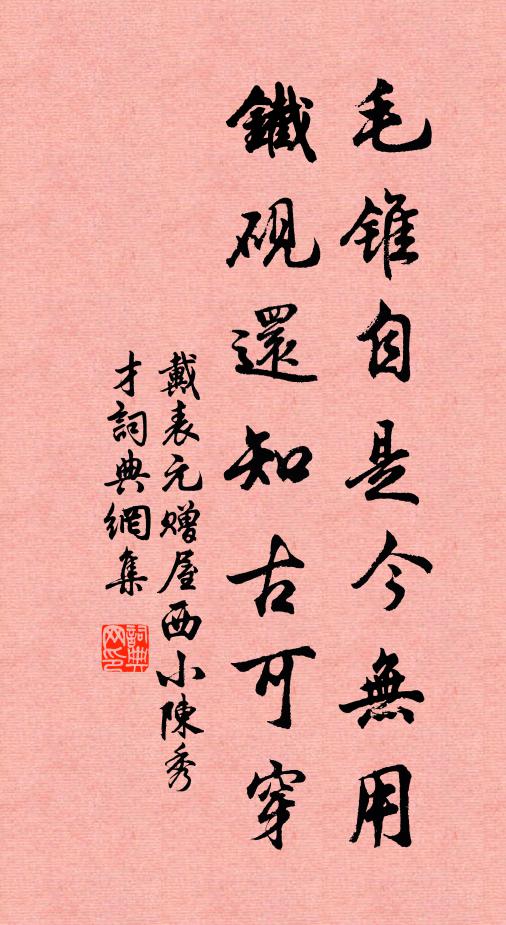 毛錐自是今無用
鐵硯還知古可穿
戴表元贈屋西小陳秀
才詞典網集
詞典網印